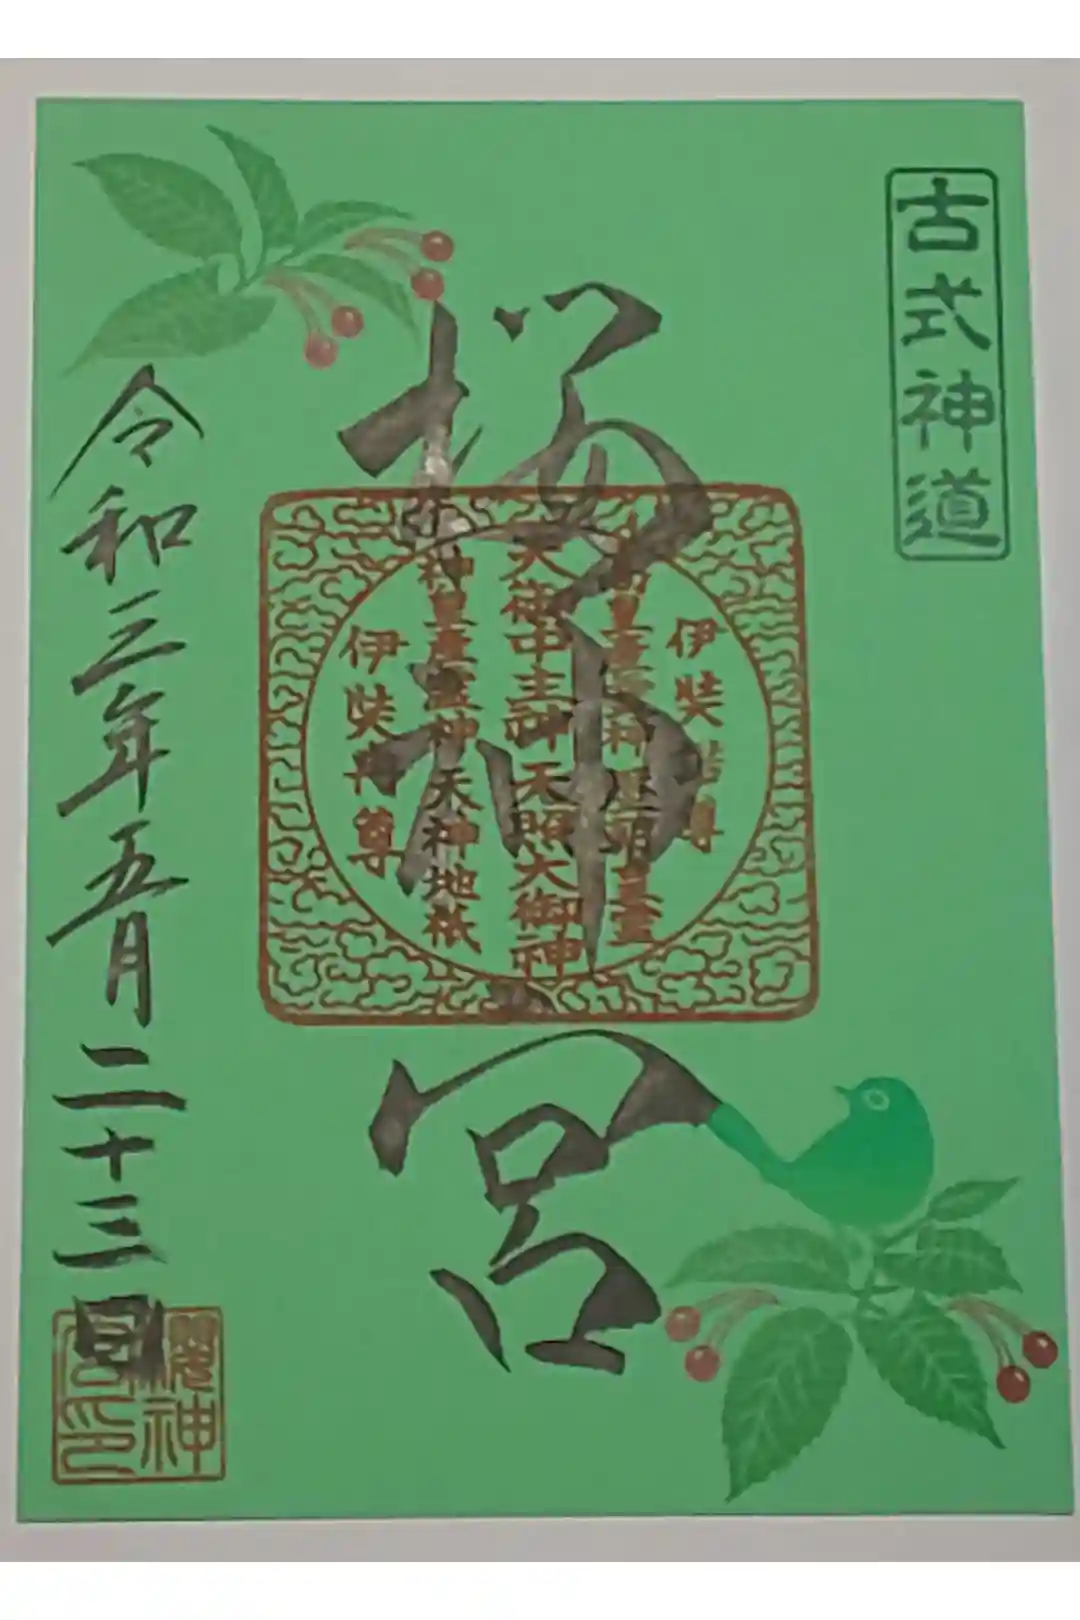 古式神道
桜神宮
伊弉諾尊
高皇産霊神
天御中主神天照大御神
神皇産霊神天神地祇
伊弉冉尊
令和三年五月二十三日
桜神
宮印